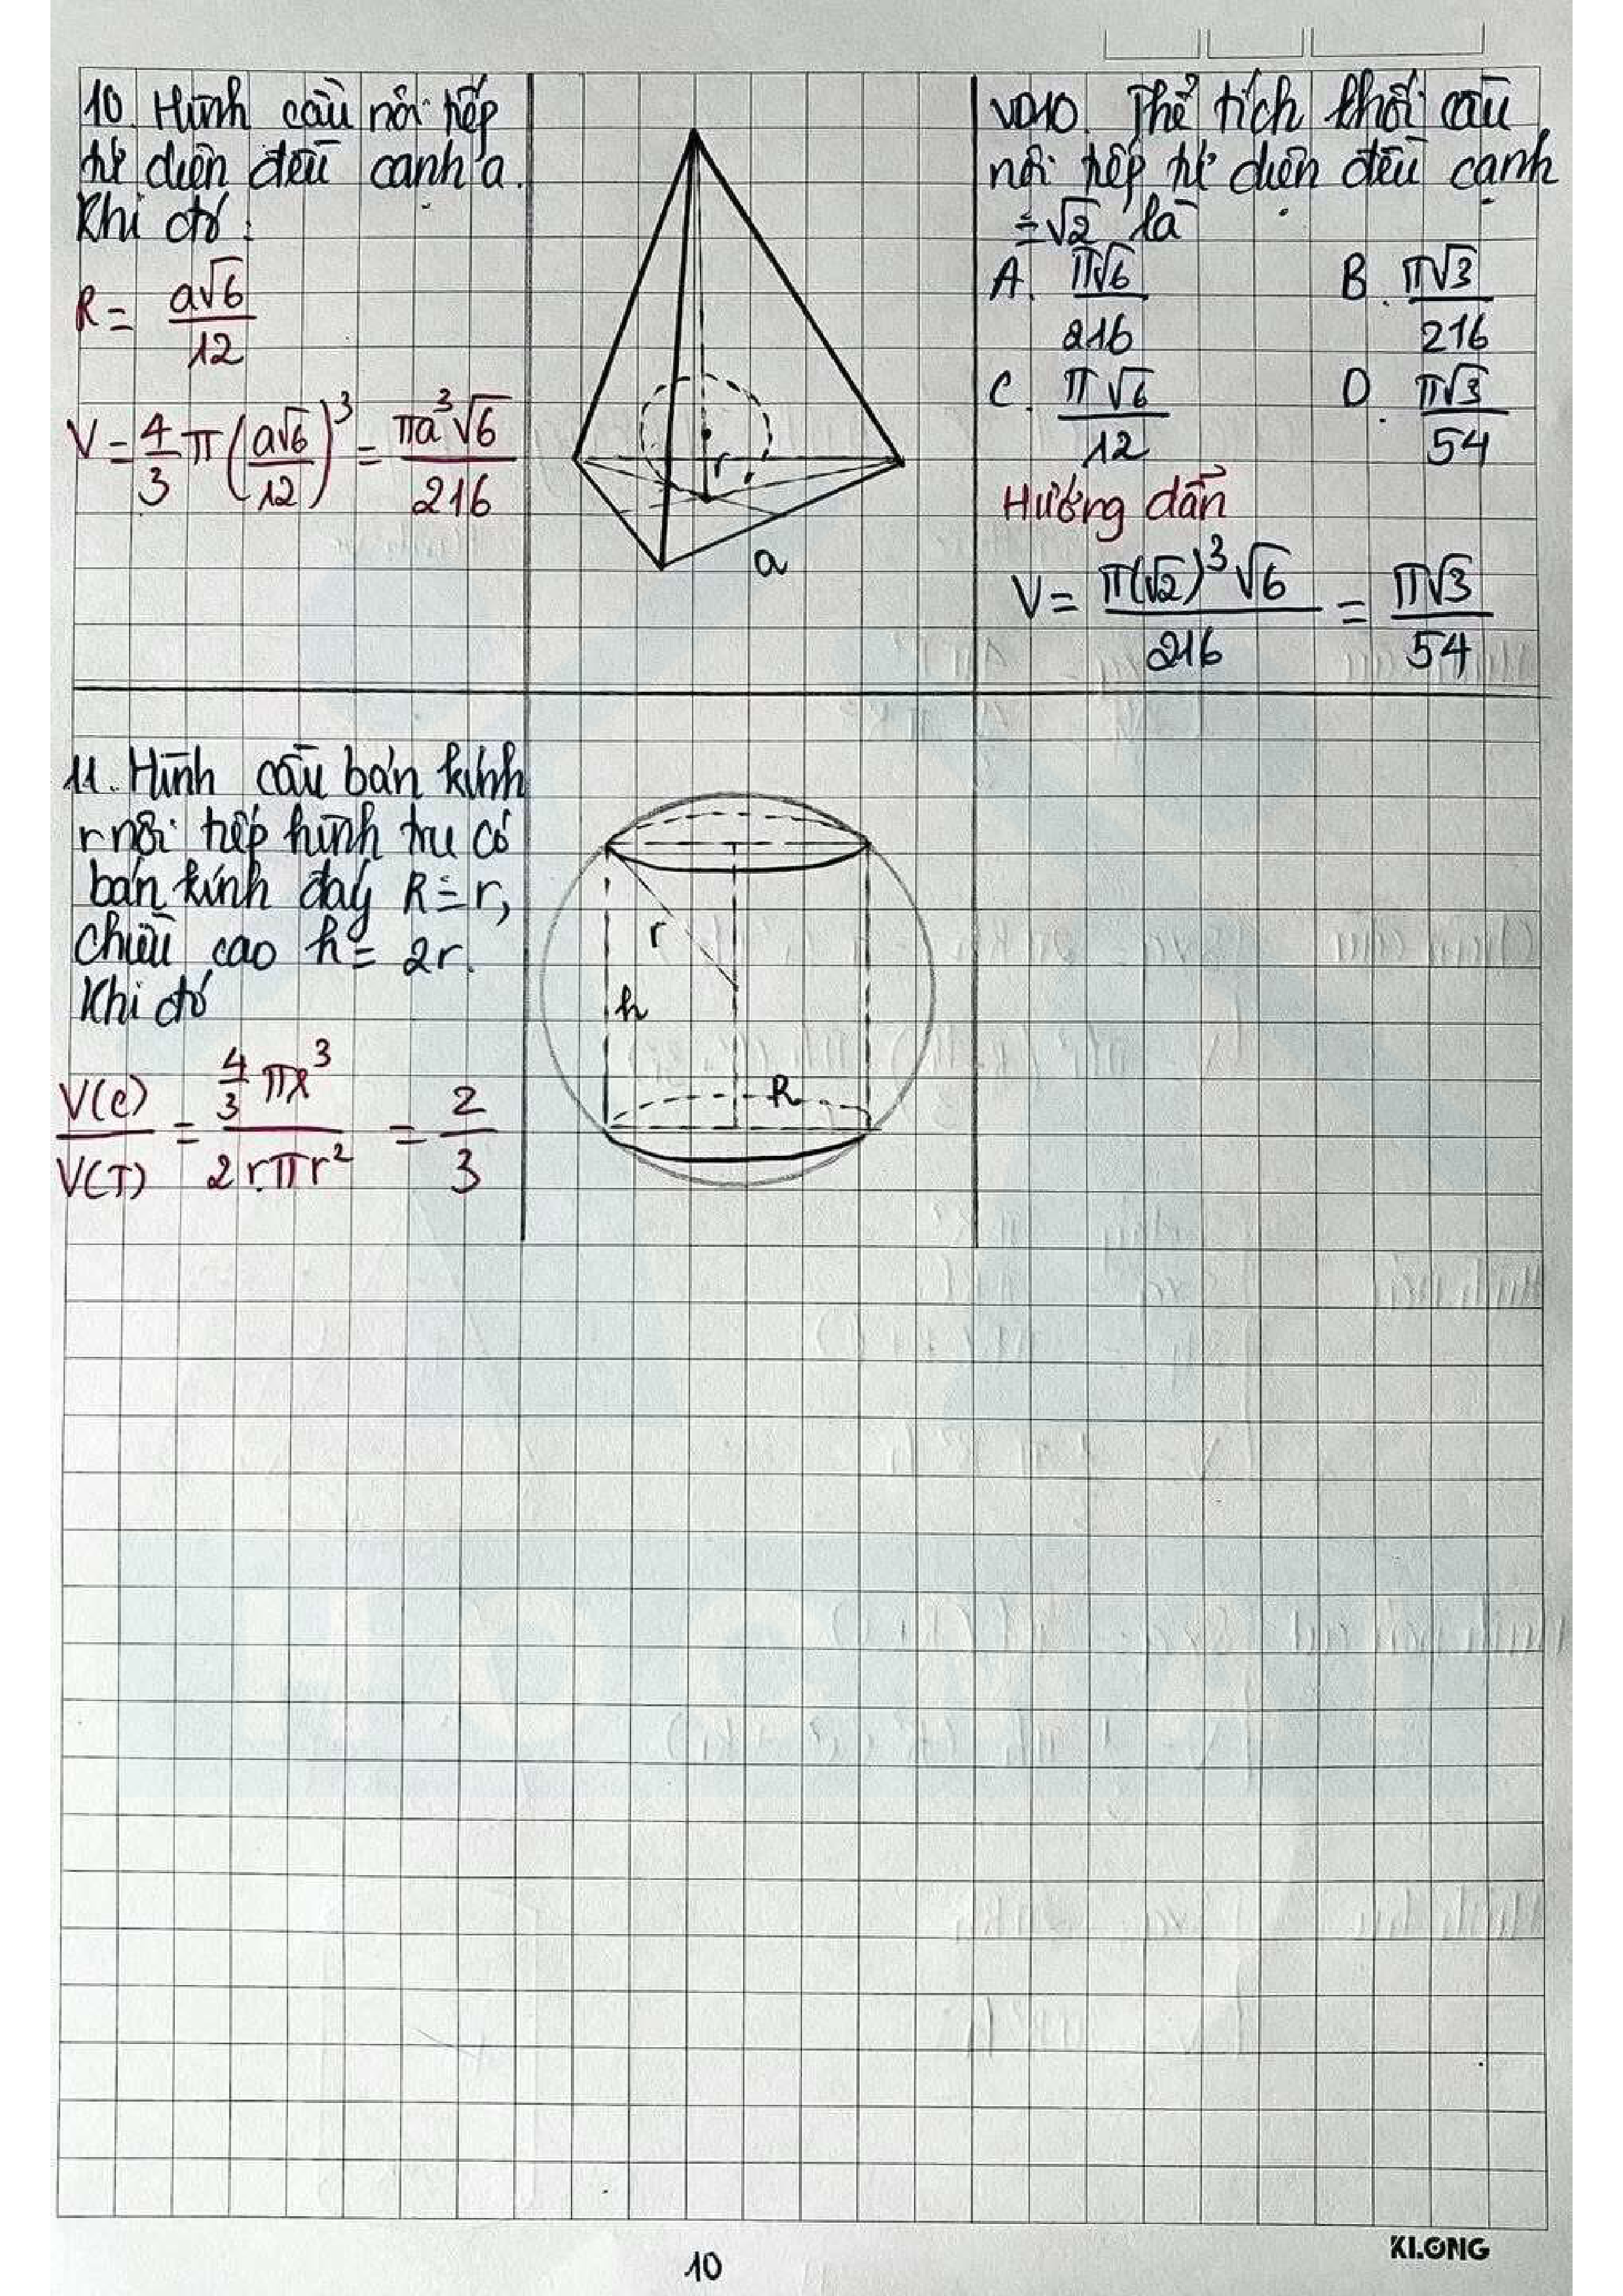 10. Hình cầu nội tiếp
tứ diện đều cạnh a.
Khi đó:
R = a√6/12
V = 4/3 π (a√6/12)³ = πa³√6/216
r
a
VD10. Thể tích khối cầu
nội tiếp tứ diện đều cạnh
= √2 là
A. π√6/216 B. π√3/216
C. π√6/12 D. π√3/54
Hướng dẫn
V = π(√2)³√6/216 = π√3/54
11. Hình cầu bán kính
r nội tiếp hình trụ có
bán kính đáy R = r,
chiều cao h = 2r.
Khi đó
V(C)/V(T) = 4/3 πr³/2r.πr² = 2/3
r
h
R
10
KLONG